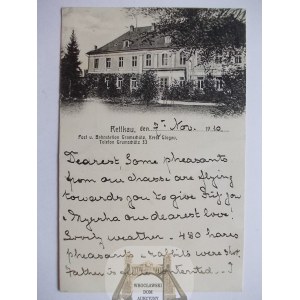 Rettkau, den 7. Nov. 1910
Post u. Bahnstation Gramschütz, Kreis Glogau,
Telefon Gramschütz III
Dearest, Some pheasants
from our chasse are flying
towards you to give &
our dearest love!
Lovely weather. 480 hares
pheasants & rabbits were shot.
Father is
WROCŁAWSKI
DOM
AUKCYJNY